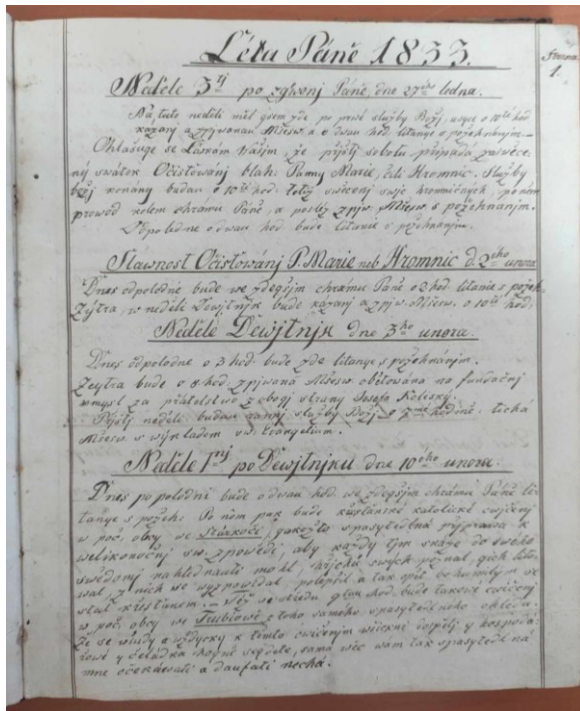 Léta Páně 1833.
Strana
1.
Neděle 3tj po zgewenj Páně, dne 27ého ledna.
Na tuto neděli měl gsem zde po prvé služby Božj, o 10té hod.
kázanj a zpjwanau Mšsw. a o dwau hod. litanye s požehnánjm. —
Ohlašuge se Láskám Wašjm, že přjštj sobotu připadá zaswěce-
ný swátek Očisťowánj blah. Panny Marie, čili Hromnic. Služby
božj konány budau o 10té hod. totiž swěcenj swjc hromničných, po něm
prowod kolem chrámu Páně, a posléz zpjw. Mšesw. s požehnanjm.
Odpoledne o dwau hod. bude litanie s požehnánjm.
Slawnost Očisťowánj P. Marie neb Hromnic d. 2ého unora
Dnes odpoledne bude we zdegšjm chrámu Páně o 2 hod. litanie s požeh.
Zýtra, w neděli Dewjtnjk bude kázanj a zpjw. Mšesw. o 10té hod.
Neděle Dewjtnjk dne 3ho unora.
Dnes odpoledne o 3 hod. bude zde litanye s požehnánjm.
Zeytra bude o 8 hod. zpjwaná Mšesw. obětowaná na fundačnj
aumysl za přátelstwo z obogj strany Josefa
Přjštj neděli budau rannj služby Božj o 7mé hodině: tichá
Mšesw. s wýkladem sw. Evangelium.
Neděle 1nj po Dewjtnjku dne 10ého unora:
Dnes po poledni bude o dwau hod. we zdegšjm chrámu Páně li-
tanye s požeh. Po něm pak bude křesťanské katolické cwičenj
w poč. obcy we Stárkoči, gakožto spasytedlná přjprawa k
welikonočnj sw. zpowědi, aby každý tjm snáze do swého
swědomj nahlédnauti mohl, hřjchů swých poznal, gich
wal, z nich se wyzpowjdal, polepšil a tak opět bohumilým se
stal křesťanem. — Též we středu g. hod. bude takowé cwičenj
w poč. obcy we Trubiowě z toho samého spasytedlného ohledu.
že se wždy a wždycky k těmto cwičenjm wšickni dospělj y hospodá-
řowé y čeládka hogně segdete, samá wěc wám tak spasytedlná
mne očekáwati a daufati nechá.